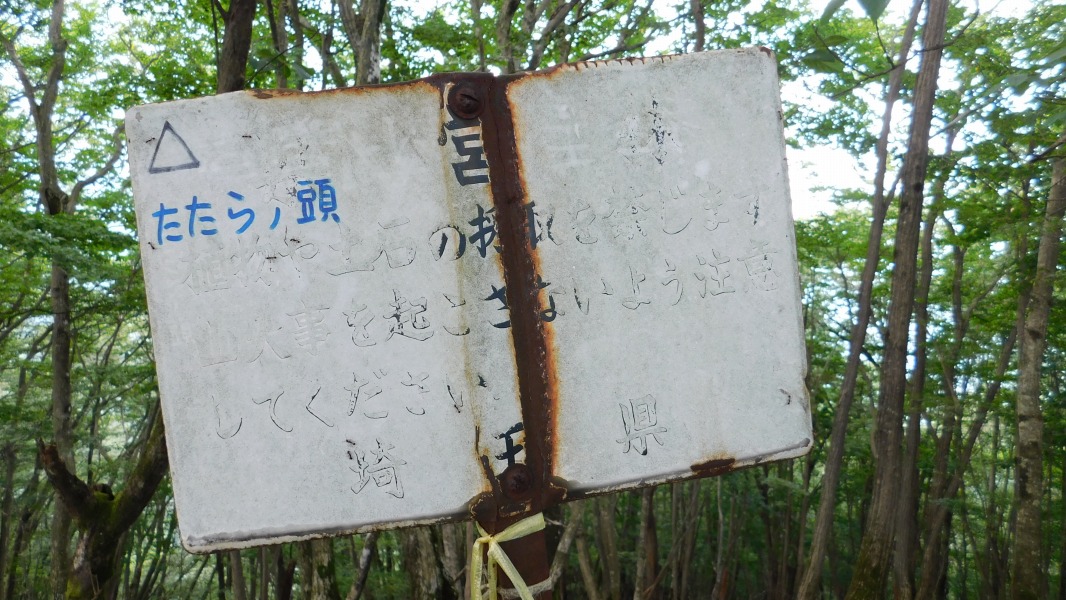 △
たたらノ頭
植物や土石の採取を禁じます
山火事を起こさないよう注意
してください
埼玉県